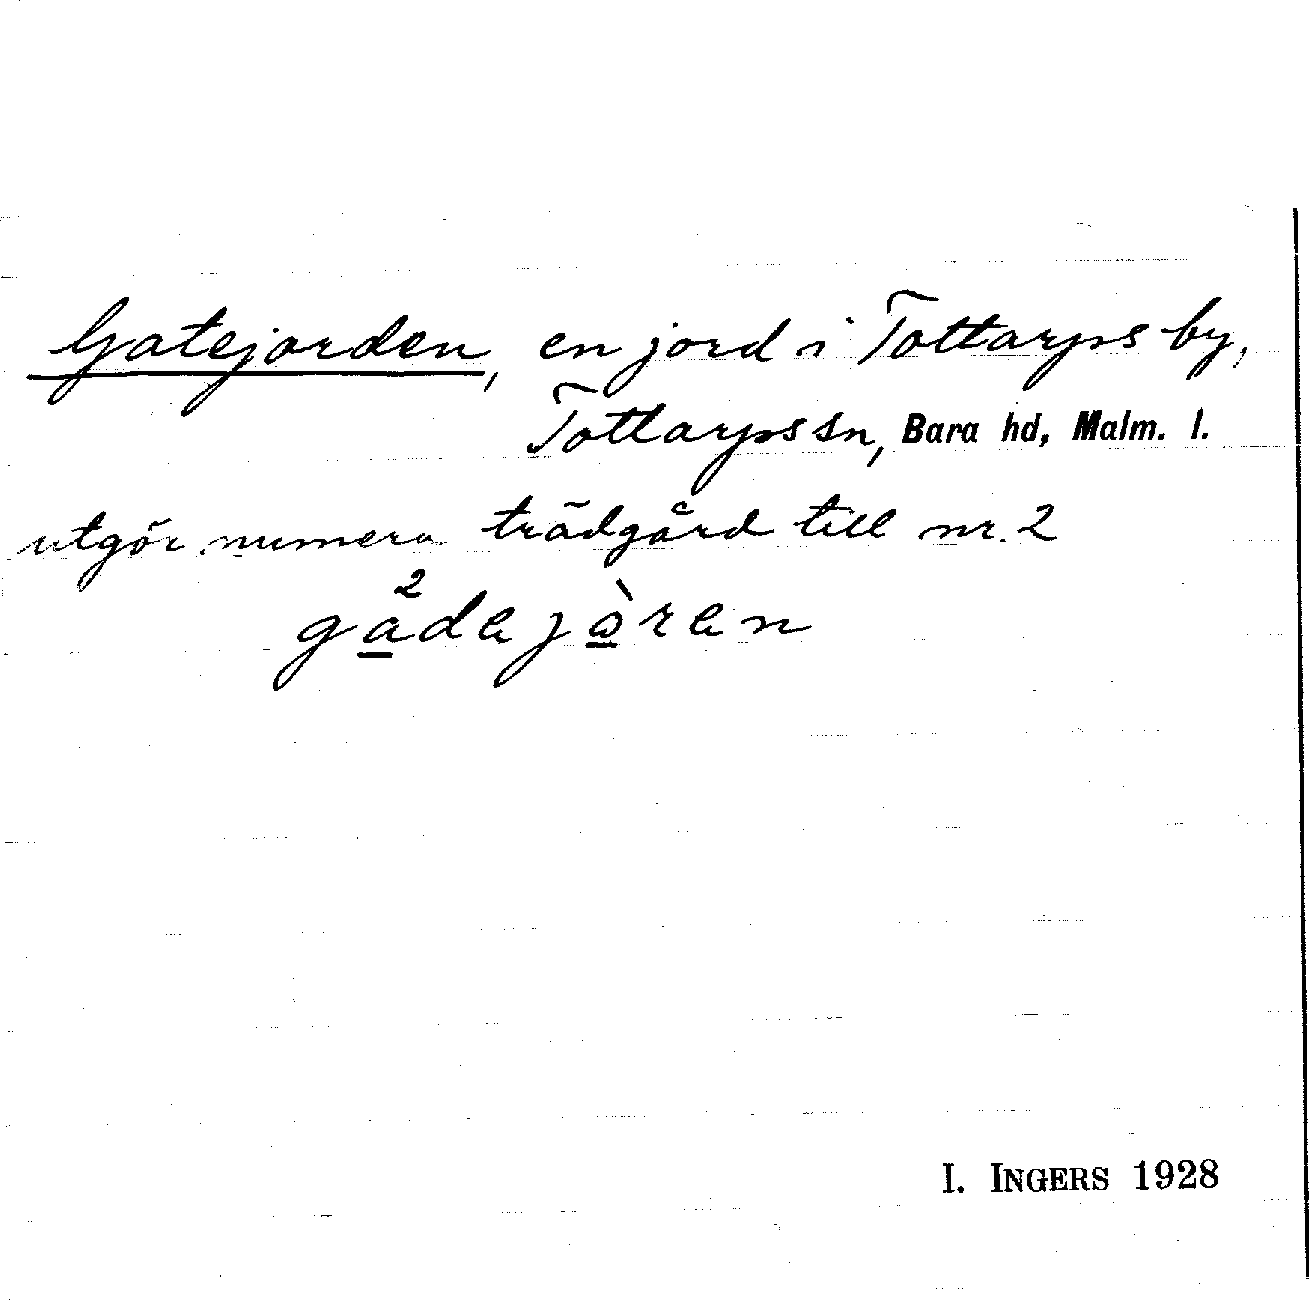 Gatejorden, en jord i Tottarps by,
Tottarps sn, Bara hd, Malm. l.
utgör numera trädgård till nr. 2
ga̲²dejò̲ren
I. INGERS 1928